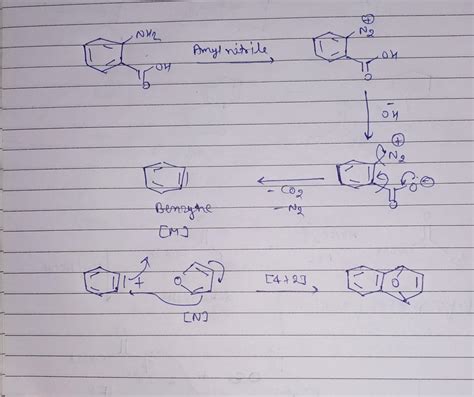 NH2
Amyl nitrile
OH
O
⊕
N2
OH
O
OH⁻
⊕
N2
O ⊖
O
- CO2
- N2
Benzyne
[M]
+
O
[N]
[4+2]
O